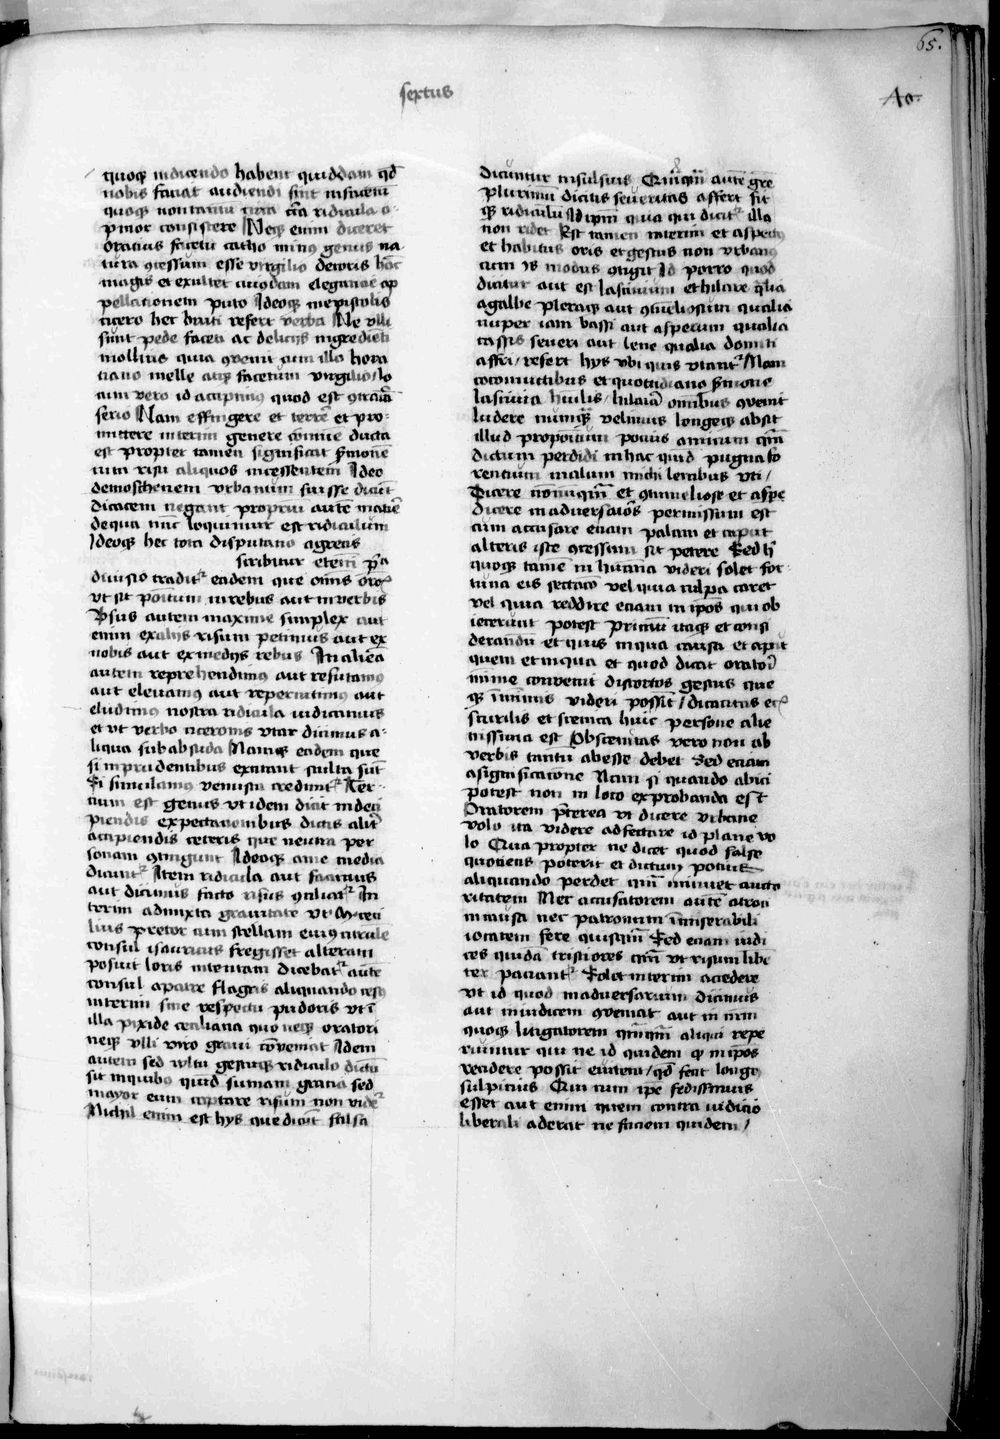 65.
sextus
A6.
quoqꝫ in dicendo habent quiddam qd̄
nobis faciat audiendi sint insaciem
quoqꝫ non tantū circa ridicula o
pinor consistere Neqꝫ enim diceret
oratius facetū carminis genus na
tura ꝯcessum esse virgilio decoris hoc̄
magis et exculte cuiusdam elegancie ap
pellationem puto Ideoqꝫ in epistolis
cicero hec bruti refert verba Ne illi
sunt pede faceti ac delicijs ingredienti
mollius quia ꝯvenit cum illo hora
tiano molle atqꝫ facetum virgilio / Io
cum vero id accipimus quod est ꝯtrariū
serio Nam effingere et terrere et pro-
mittere interim genere ꝯmune dicta
est propter tamen significat sermonē
cum risu aliquos incessentem Ideo
demosthenem vrbanum fuisse dicūt
dicacem negant proprui autē materie
de qua nūc loquimur est ridiculum
Ideoqꝫ hec tota disputatio a grecis
scribitur etenī pͥa
diuisio traditᷣ eadem que oīnis oroīs
vt sit positum in rebus aut in verbis
Vsus autem maxime simplex aut
enim ex alijs risum petimus aut ex
nobis aut ex medijs rebus In aliena
autem reprehendimus aut refutamus
aut eleuamus aut repercutimus aut
eludimus nostra ridicula indicamus
et vt verbo ciceronis vtar dicimus a-
liqua subabsurda Namqꝫ eadem que
si inprudentibus excitant stulta sūt
Si simulamus venusta credūtᷣ Ter-
cium est genus vt idem dicit in deci
piendis expectacionibus dictis aliter
accipiendis ceteris que neutra per
sonam ꝯtingunt Ideoqꝫ a me media
dicuntᷣ Item ridicula aut facimus
aut dicimus facto risus ꝯciliatᷣ In
terim admixta grauitate vt M. celi
lius pretor cum sellam eius curule
consul isauricus fregisset alteram
posuit loris intentam dicebatᷣ autē
consul a patre flagris aliquando cesus
interim sine respectu pudoris vt ī
illa pixide celiana quo neqꝫ oratori
neqꝫ vlli viro graui cōveniat Idem
autem sed vultu gestuqꝫ ridiculo dictū
sit in quibus quid sumam gracia sed
mayor cum captare risum non videᷣ
Nichil enim est hys que dicūt salsa
dicuntur insulsius Quāquā autē gre
plurimū dictis seueritas affert fit
qꝫ ridiculū id ipm̄ quia qui dicitᷣ illa
non ridet Est tamen interim et aspectus
et habitus oris et gestus non vrbanus
cum ys modus ꝯtigit Id porro quod
dicitur aut est lasciuum et hilare qualia
a galbe pleraqꝫ aut ꝯtumeliosum qualia
nuper iam bassi aut asperum qualia
cassis seueri aut lene qualia domiti
affri / refert hys vbi quis vtantᷣ Nam
in conuictibus et quottidiano sermone
lasciua humilis / hilaria omībus ꝯvenit
ludere numqꝫ velimus longeqꝫ absit
illud propositum pocius amicum quā
dictum perdidi in hac quid pugna fo
rentium malum michi lenibus vti /
Dicere nonnūquā et ꝯtumeliose et aspe
dicere in aduersarios permissum est
cum accusare eciam palam et caput
alteris iste ꝯcessum sit petere Sed h'
quoqꝫ tamē inhūana videri solet for-
tuna eis sectacō vel quia culpa caret
vel quia reddire eciam in ipos qui ob
iecerunt potest primū itaqꝫ et consi
derandū et quis in qua causa et apud
quem et in qua et quod dicat oratori
minime convenit distortos gestus que
qꝫ īnimis videri possit / dicacitas et
scurrilis et scenica huic persone alie
nissima est Obscenitas vero non ab
verbis tantū abesse debet Sed eciam
a significacione Nam si quando abici
potest non in loco exprobanda est
Oratorem p̄terea vt dicere vrbane
volo ita videre adfectare id plane no
lo Qua propter ne dicet quod salse
quotiens poterit et dictum potius
aliquando perdet quā minuet aucto
ritatem Nec accusatorem autē atroci
in causa nec patronum in miserabili
iocatem fere quisquā Sed eciam iudi
ces quidā tristiores quā vt risum libē
ter paciantᷣ Solet interim accedere
vt id quod in aduersarium dicimus
aut in iudicem ꝯveniat aut in nr̄m
quoqꝫ litigatorem quāquā aliqui repe
riuntur qui ne id quidem qd in ipos
recidere possit euitent / qd̄ fecit longꝯ
sulpitius Qui cum ipe fedissimus
esset aut enim quem contra iudicio
liberali aderat ne faciem quidem /